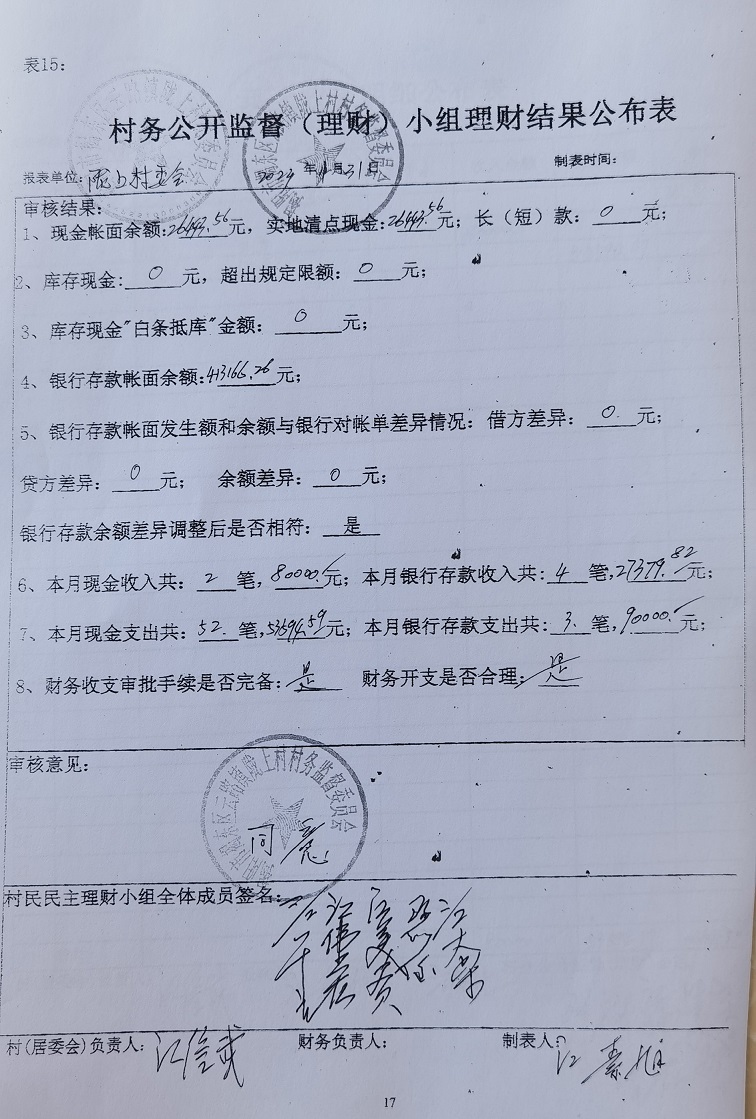 表15:
村务公开监督（理财）小组理财结果公布表
报表单位: 陇上村委会 年 月31日 制表时间:
审核结果:
1、现金帐面余额:26443.56元，实地清点现金:26443.56元；长（短）款: 0 元；
2、库存现金: 0 元，超出规定限额: 0 元；
3、库存现金"白条抵库"金额: 0 元；
4、银行存款帐面余额:413166.26元；
5、银行存款帐面发生额和余额与银行对帐单差异情况: 借方差异: 0 元；
贷方差异: 0 元； 余额差异: 0 元；
银行存款余额差异调整后是否相符: 是
6、本月现金收入共: 2 笔，80000.元；本月银行存款收入共: 4 笔，27379.82元；
7、本月现金支出共: 52. 笔，53694.59元；本月银行存款支出共: 3. 笔，90000.元；
8、财务收支审批手续是否完备: 是 财务开支是否合理: 是
审核意见:
同意
村民民主理财小组全体成员签名:
村(居委会)负责人: 财务负责人: 制表人:
17